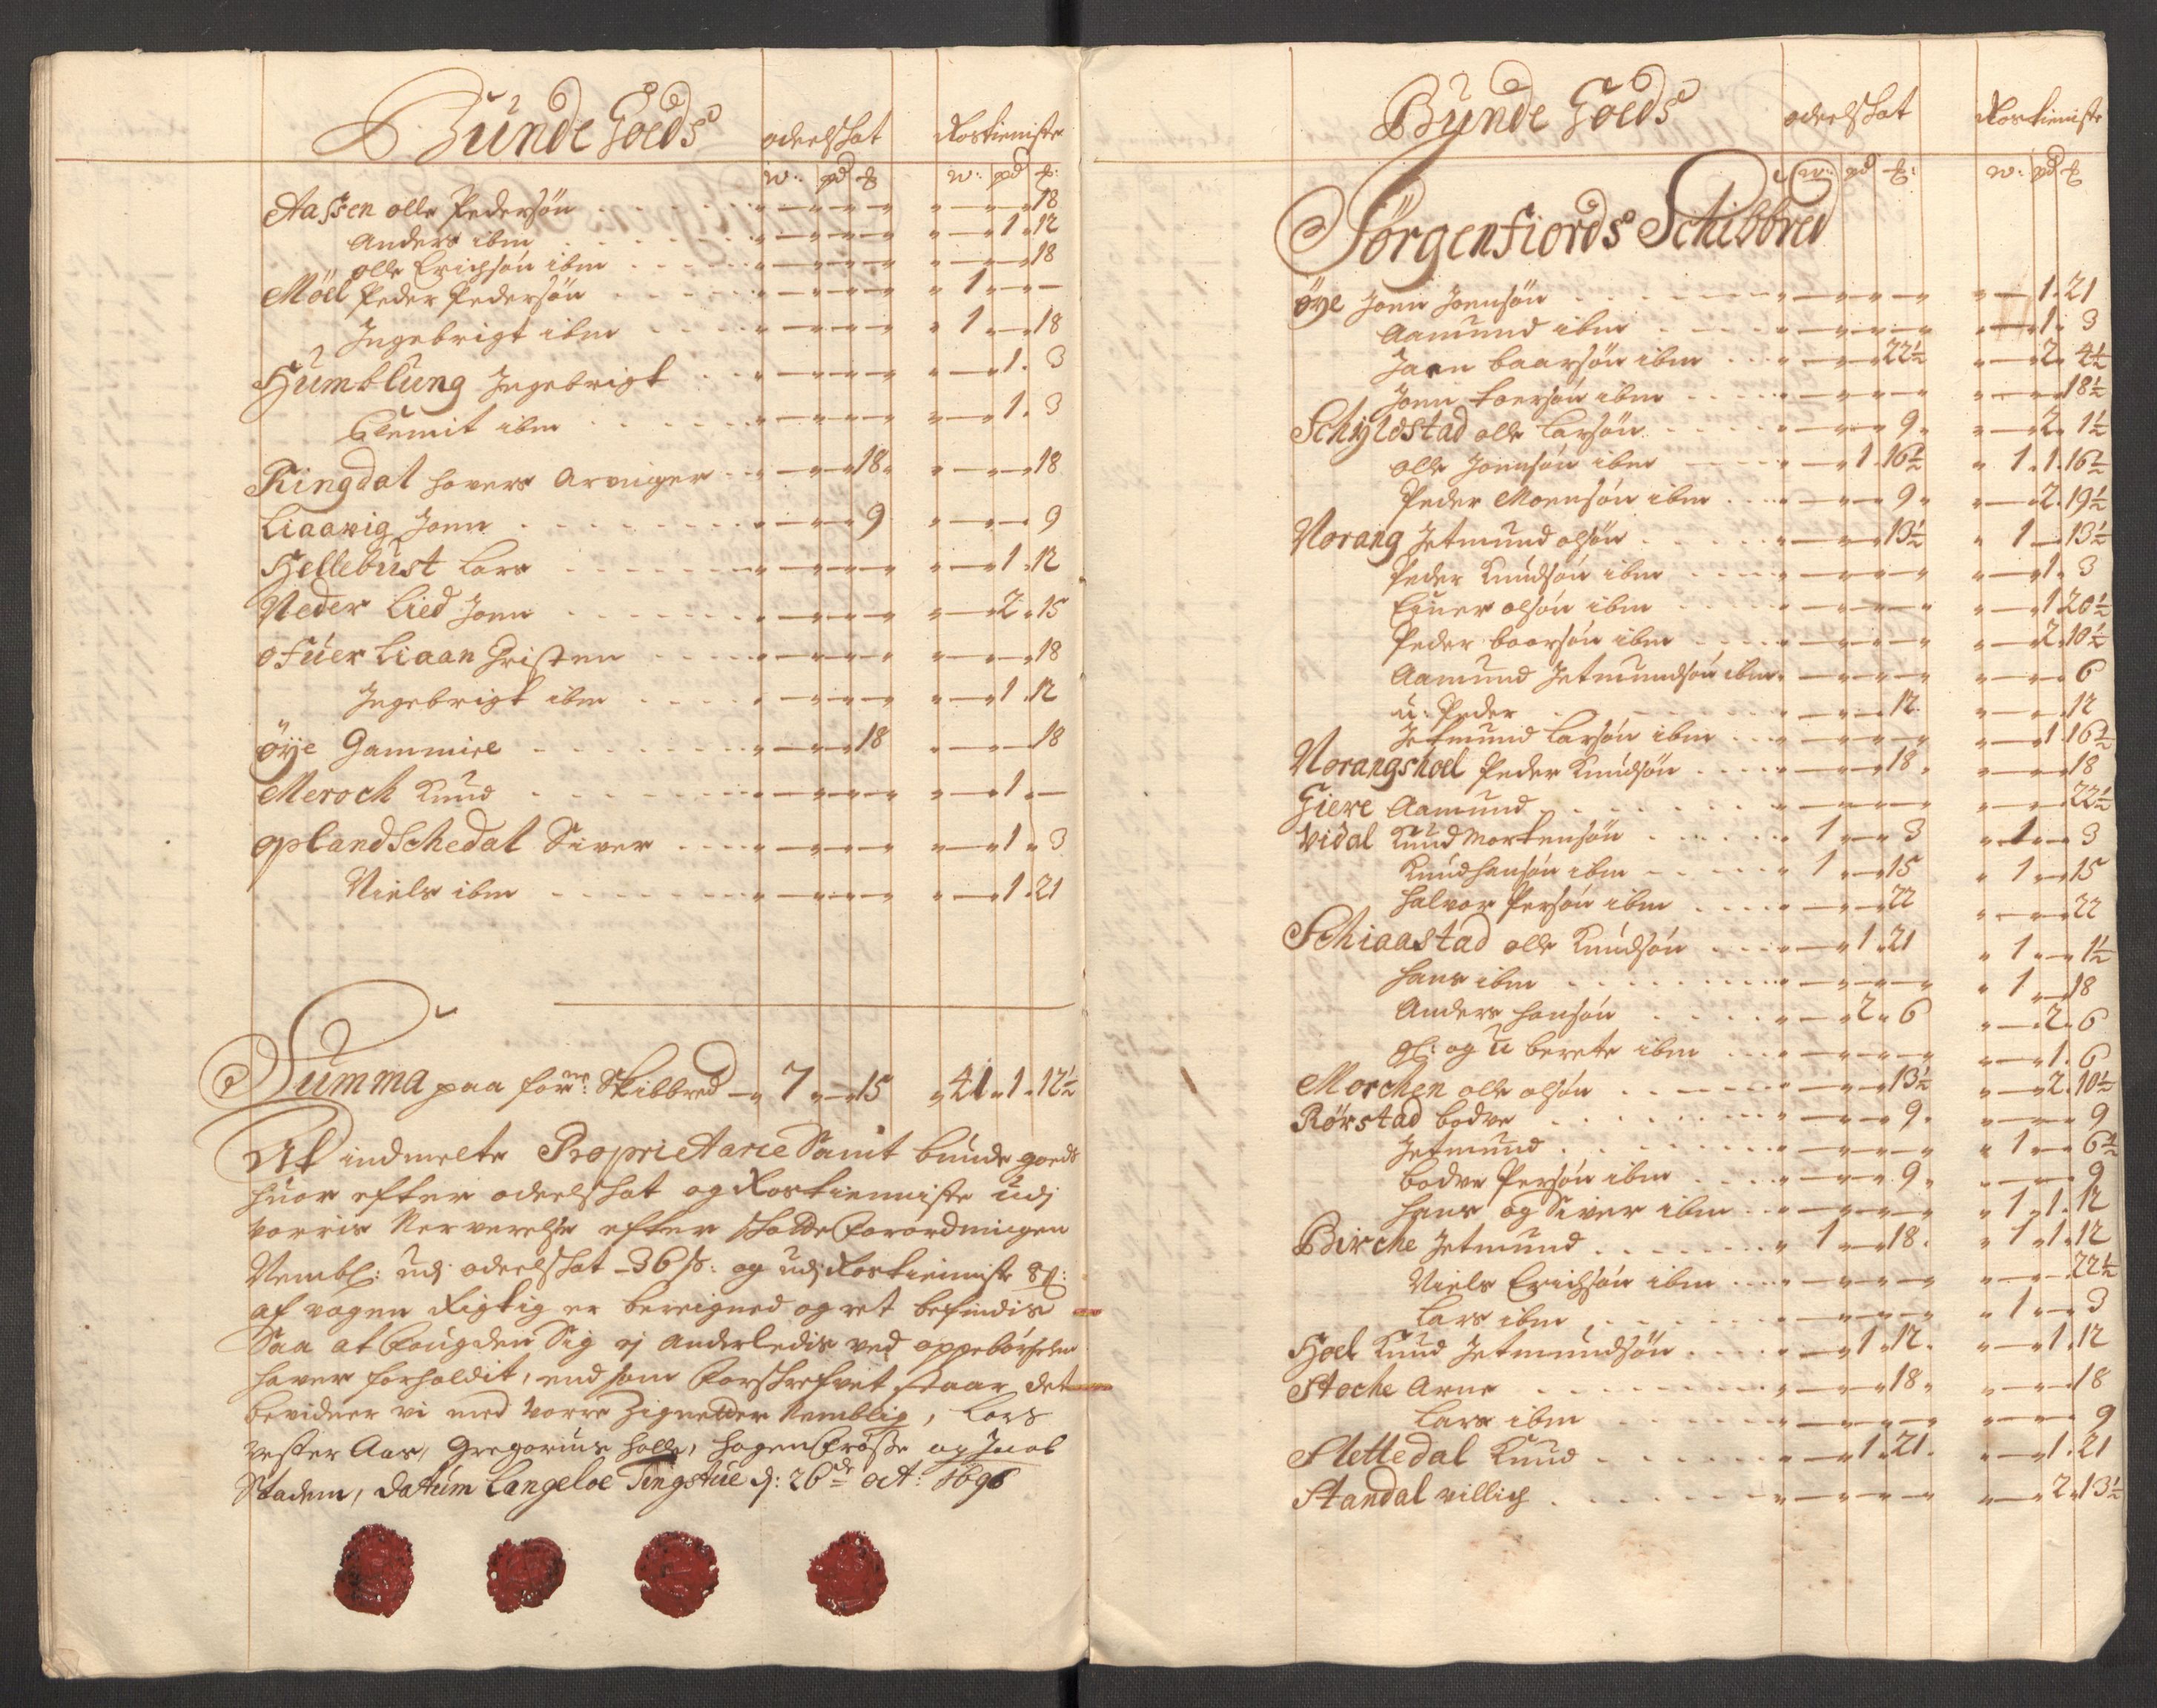 Bunde Goeds odelschat Rostieniste
w: pd ℔ w: pd ℔:
Aassen olle Pedersøn 18
Anders ibm 1 12
olle Erichsøn ibm 18
Möel Peder Pedersøn 1
Ingebrigt ibm 1 18
Humblung Ingebrigt 1. 3
Clemit ibm 1. 3
Ringdal Arvinger 18 18
Liaavig Jonn 9 9
Hellebust Lars 1 12
Neder Lied Jonn 2 15
ofuer Liaan Christen 18
Ingebrigt ibm 1 12
öye Gammiel 18 18
Merock Knud 1
opland Schedal Siver 1 3
Niels ibm 1 21
Summa paa forne: Skibbred 7 15 41 1 12½
At indmelte Proprietarie Samt bunde goeds
huor efter odelschat og Rostieniste udj
vorris Nerverelse efter schatte forordningen
Nembl: udj odelschat 36 s: og udj Rostieniste 8 s:
af vogen Rigtig er bereigned og ret befindis
Saa at fougden Sig ej anderledis ved oppebörselen
haver forholdit, end som forschrefvet staar det
bevidner vi med vorre Zignetter Nemblig, Lars
vester Aas, Gregorius Holle, Hogen og Jacob
Staden, datum Langeloe Tingstue d: 26de oct: 1696
Bunde Goeds odelschat Rostieniste
w: pd ℔: w: pd ℔
Jørgenfiords Schibbred
öye Jonn Jonnsøn 1. 21
Aamund ibm 1. 3
Jonn baarsøn ibm 22½ 2. 4½
Jonn ibm 18½
Schyldstad olle Larsøn 9 2. 1½
olle Jonnsøn ibm 1 16½ 1. 1. 16½
Peder Monsøn ibm 9 2. 19½
Norang Jetmund olsøn 13½ 1 13½
Peder Knudsøn ibm 1. 3
Einer olsøn ibm 1 20½
Peder baarsøn ibm 2. 10½
Aamund Jetmundsøn ibm 6
u. Peder 12 12
Jetmund Larsøn ibm 1 16½
Norangshoel Peder Knudsøn 18 18
Giere Aamund 22½
Vidal Knud Mortensøn 1 3 1 3
Knud Hansøn ibm 1 15 1 15
Halvor Persøn ibm 22 22
Schiaastad olle Knudsøn 1 21 1 1½
Hans ibm 1 18
Anders Hansøn 2 6 2. 6
og u berete ibm 1. 6
Morchen olle olsøn 13½ 2. 10½
Rørstad bodve 9 9
Jetmund 1 6½
bodve Persøn ibm 9 9
Hans og Siver ibm 1. 1. 12
Birche Jetmund 1 18 1 1. 12
Niels Erichsøn ibm 22½
Lars ibm 1 3
Hoel Knud Jetmundsøn 1 12 1. 12
Stoche Arne 18 18
Lars ibm 9
Slettedal Knud 1 21 1. 21
Standal villich 2 13½